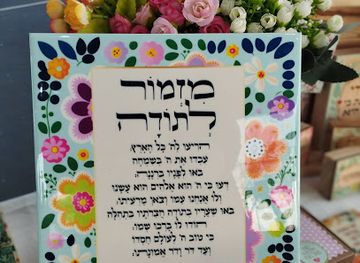 מִזְמוֹר
לְתוֹדָה
הריעו לה' כל הארץ.
עבדו את ה' בשמחה
באו לפניו ברננה.
דעו כי ה' הוא אלהים הוא עשנו
ולו אנחנו עמו וצאן מרעיתו.
באו שעריו בתודה חצרתיו בתהלה
הודו לו ברכו שמו.
כי טוב ה' לעולם חסדו
ועד דר ודר אמונתו.